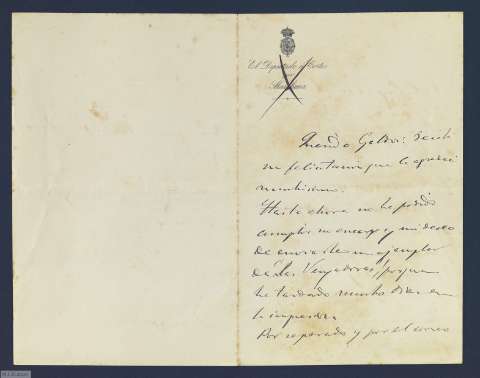 El Diputado á Cortes
por
Querido Galdós: Recibí
su felicitación que le agradecí
muchísimo.
Hasta ahora no he podido
cumplir su encargo y mi deseo
de enviarle un ejemplar
de "Los Vengadores", porque
ha tardado mucho días en
la imprenta.
Por separado y por el correo